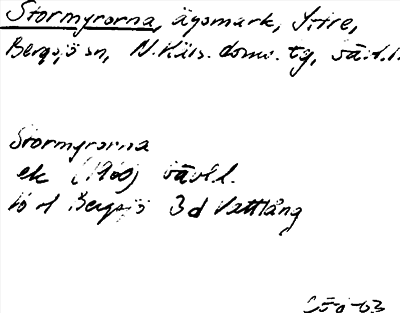 Stormyrorna, ägomark, Yttre,
Bergsjö sn, N. Häls. doms. tg, Gävl.l.
Stormyrorna
ek (1960) Gävl.l.
Bergsjö 3d Vattlång